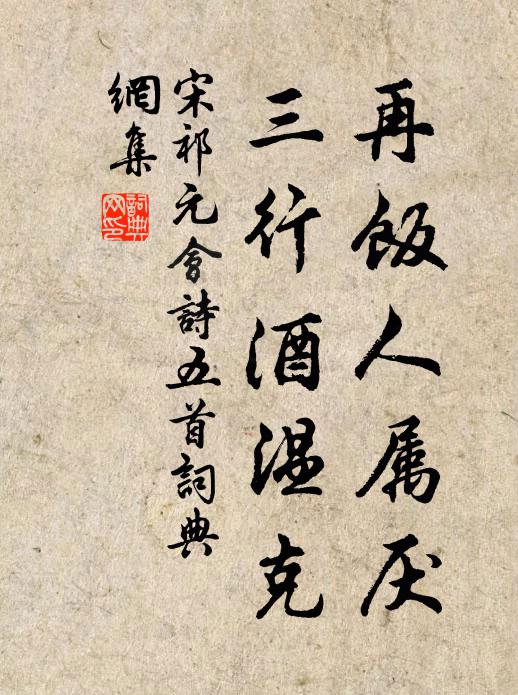 再飯人属厌
三行酒温克
宋祁元會詩五首詞典
網集
詞典網印